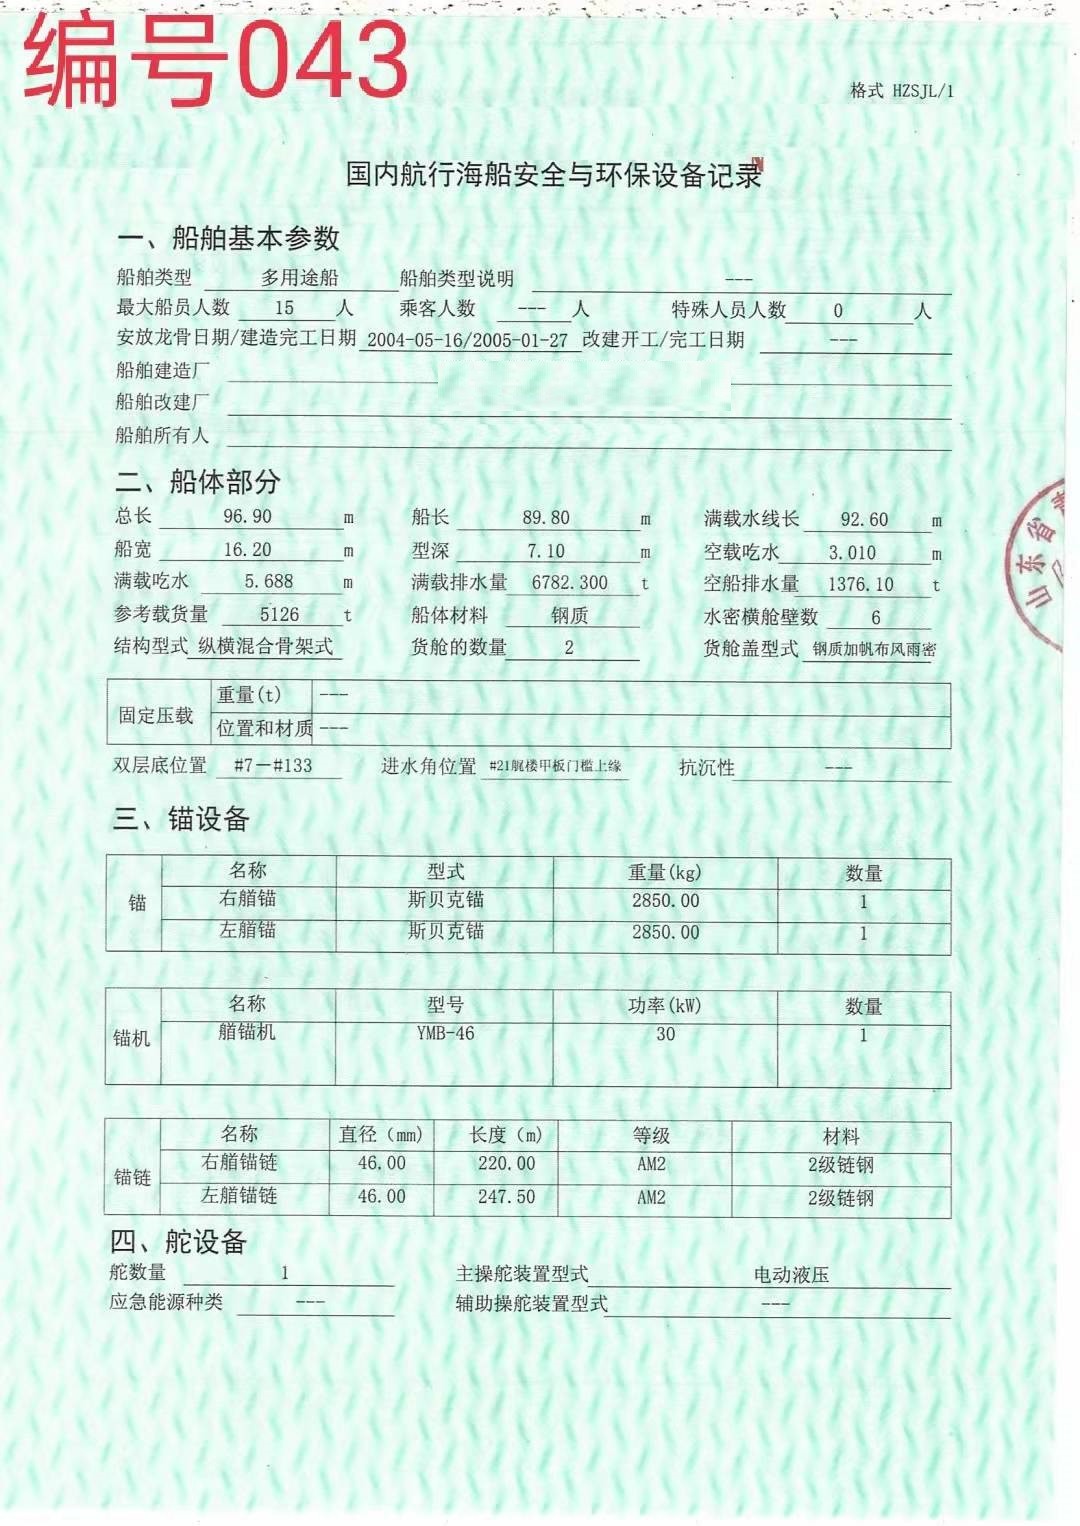 编号043
格式 HZSJL/1
国内航行海船安全与环保设备记录
一、船舶基本参数
船舶类型 多用途船 船舶类型说明 ---
最大船员人数 15 人 乘客人数 --- 人 特殊人员人数 0 人
安放龙骨日期/建造完工日期 2004-05-16/2005-01-27 改建开工/完工日期 ---
船舶建造厂
船舶改建厂
船舶所有人
二、船体部分
总长 96.90 m 船长 89.80 m 满载水线长 92.60 m
船宽 16.20 m 型深 7.10 m 空载吃水 3.010 m
满载吃水 5.688 m 满载排水量 6782.300 t 空船排水量 1376.10 t
参考载货量 5126 t 船体材料 钢质 水密横舱壁数 6
结构型式 纵横混合骨架式 货舱的数量 2 货舱盖型式 钢质加帆布风雨密
固定压载 重量(t) ---
位置和材质 ---
双层底位置 #7—#133 进水角位置 #21艉楼甲板门槛上缘 抗沉性 ---
三、锚设备
锚 名称 型式 重量(kg) 数量
右艏锚 斯贝克锚 2850.00 1
左艏锚 斯贝克锚 2850.00 1
锚机 名称 型号 功率(kW) 数量
艏锚机 YMB-46 30 1
锚链 名称 直径（mm） 长度（m） 等级 材料
右艏锚链 46.00 220.00 AM2 2级链钢
左艏锚链 46.00 247.50 AM2 2级链钢
四、舵设备
舵数量 1 主操舵装置型式 电动液压
应急能源种类 --- 辅助操舵装置型式 ---
山东省青